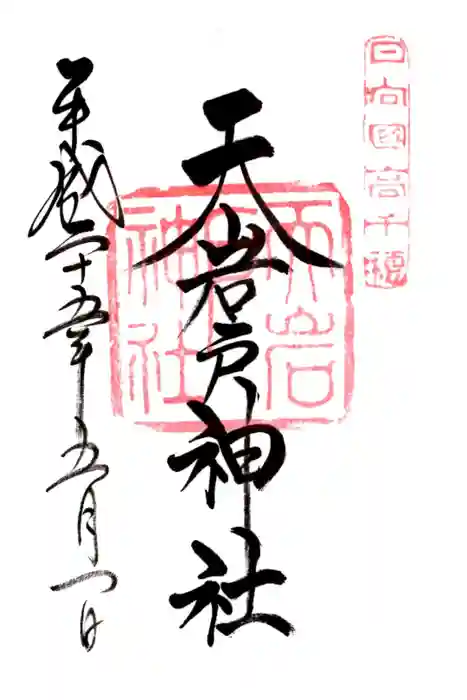 日向國高千穂
天岩戸神社
平成二十五年五月一日